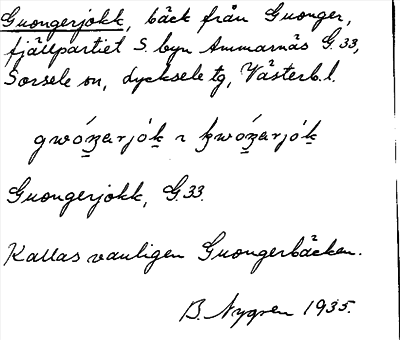 Guongerjokk, bäck från Guonger,
fjällpartiet S. byn Ammarnäs G.33,
Sorsele sn, Lycksele tg, Västerb. l.
gwóŋarjók ɿ kwóŋarjók
Guongerjokk, G.33.
Kallas vanligen Guongerbäcken.
B. Nygren 1935.